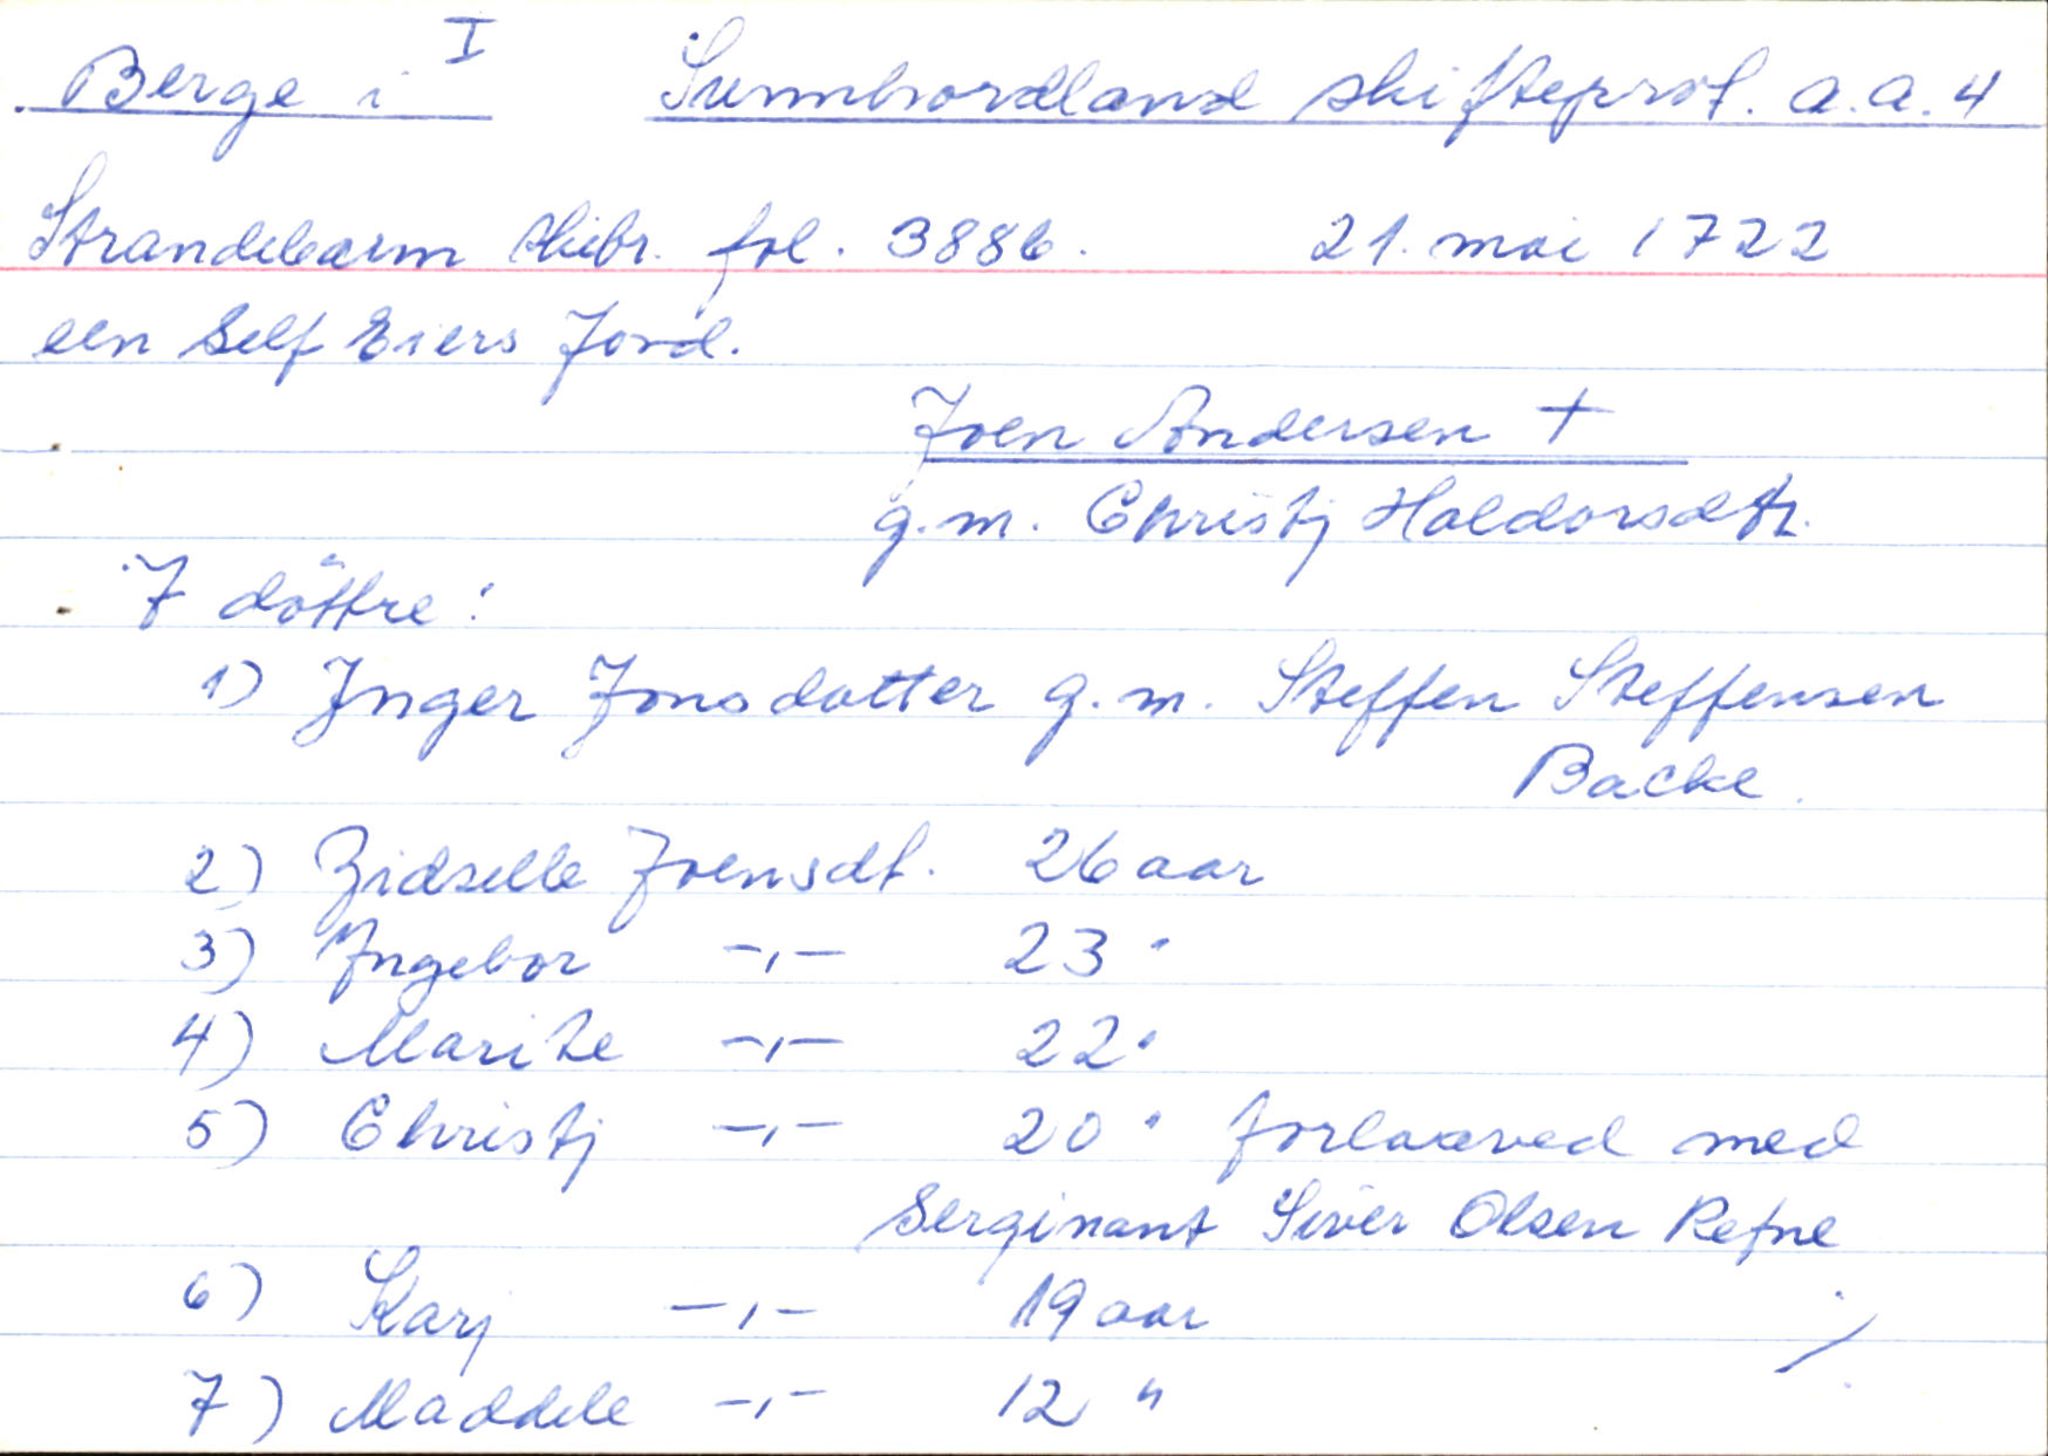 I
Berge i Sunnhordland skifteprot. a.a.4
Strandebarm skibr. fol. 388b. 21. mai 1722
een Self Eiers Jord.
Joen Andersen +
g.m. Christj Haldorsdtr.
7 döttre:
1) Inger Jonsdatter g.m. Steffen Steffensen
Backe.
2) Zidselle Joensdt. 26 aar
3) Ingebor -,- 23 "
4) Marite -,- 22 "
5) Christj -,- 20 " forlaaved med
Serginant Siver Olsen Refne
6) Karj -,- 19 aar
7) Maddele -,- 12 "